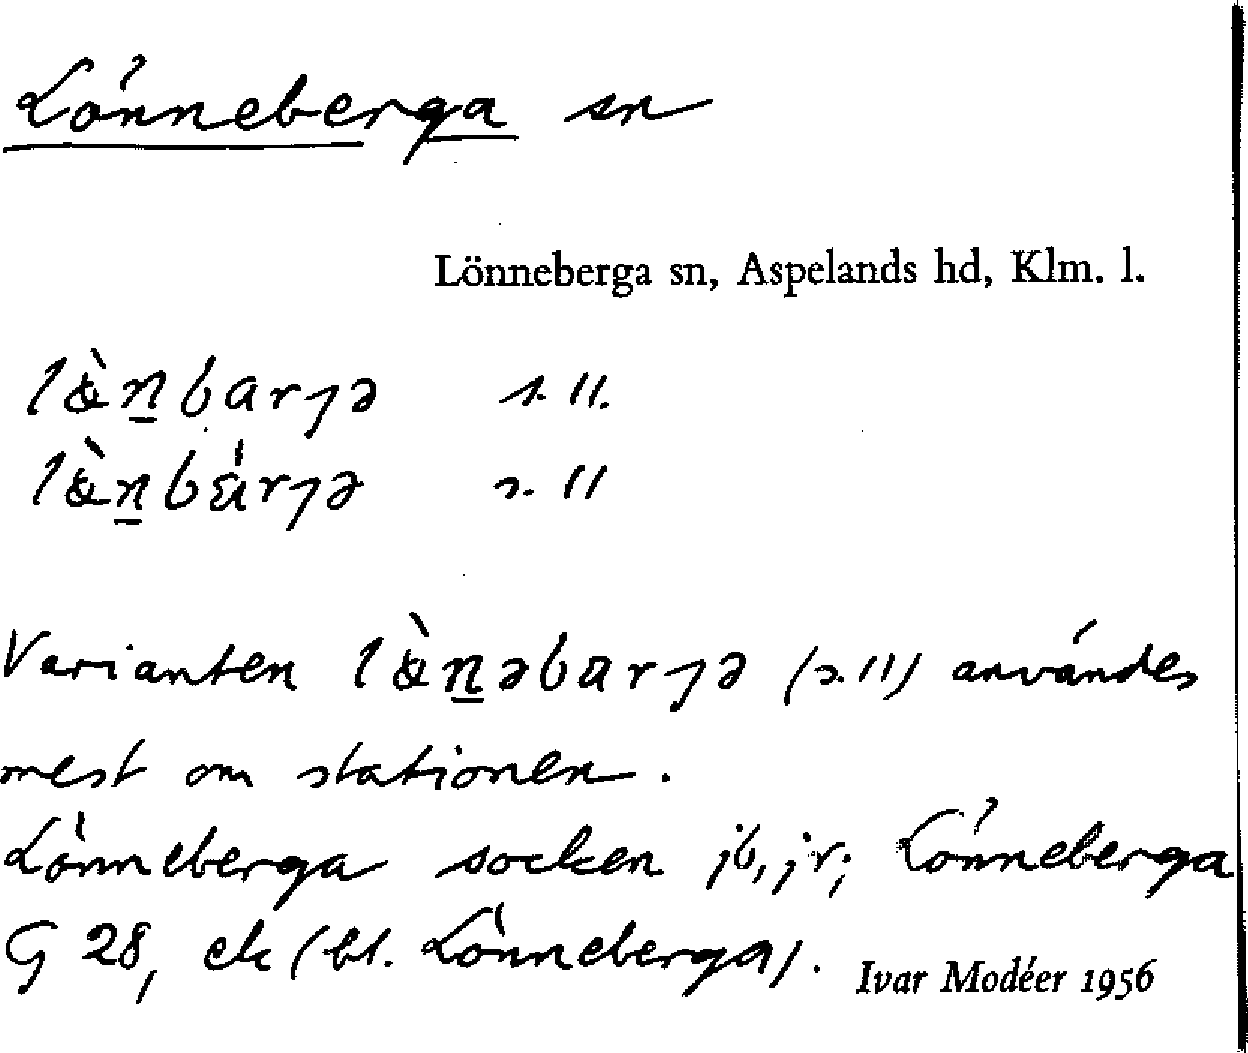 Lönneberga sn
Lönneberga sn, Aspelands hd, Klm. l.
s. 11.
s. 11
Varianten (s. 11) användes
mest om stationen.
Lönneberga socken jb, jr; Lönneberga
G 28, ek (bl. Lönneberga).
Ivar Modéer 1956